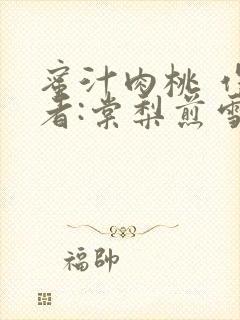 蜜汁肉桃 作
者:棠梨煎雪
福帥